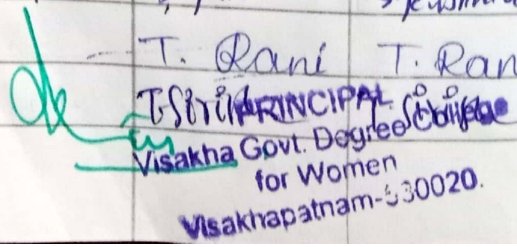 T. Rani T. Ran
PRINCIPAL
Visakha Govt. Degree College
for Women
Visakhapatnam-530020.